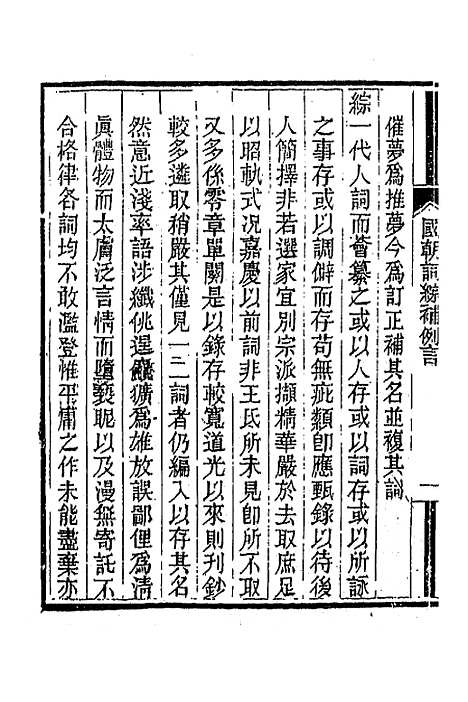 國朝詞綜補例言
一
催夢爲推夢今爲訂正補其名並複其詞
綜一代人詞而薈纂之或以人存或以詞存或以所詠
之事存或以調僻而存苟無疵纇卽應甄錄以待後
人簡擇非若選家宜別宗派擷精華嚴於去取庶足
以昭軌式况嘉慶以前詞非王氏所未見卽所不取
又多係零章單闋是以錄存較寬道光以來則刊鈔
較多遴取稍嚴其僅見一二詞者仍編入以存其名
然意近淺率語涉纖佻逞麤獷爲雄放誤鄙俚爲清
眞體物而太膚泛言情而墮褻昵以及漫無寄託不
合格律各詞均不敢濫登惟平庸之作未能盡棄亦